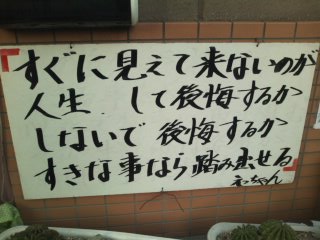 すぐに見えて来ないのが
人生 して後悔するか
しないで後悔するか
すきな事なら踏み出せる
ネっちゃん